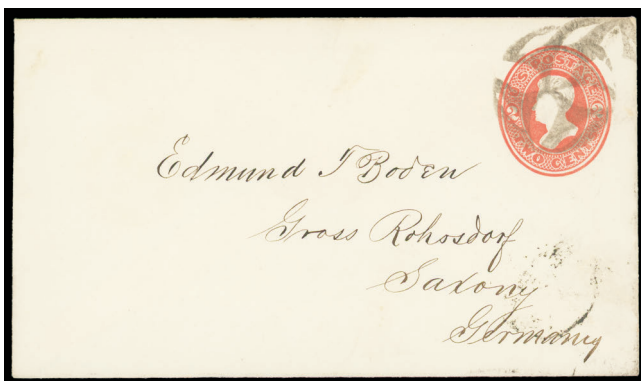 U.S. POSTAGE
TWO CENTS
Edmund T Boden
Gross Rohosdorf
Saxony
Germany